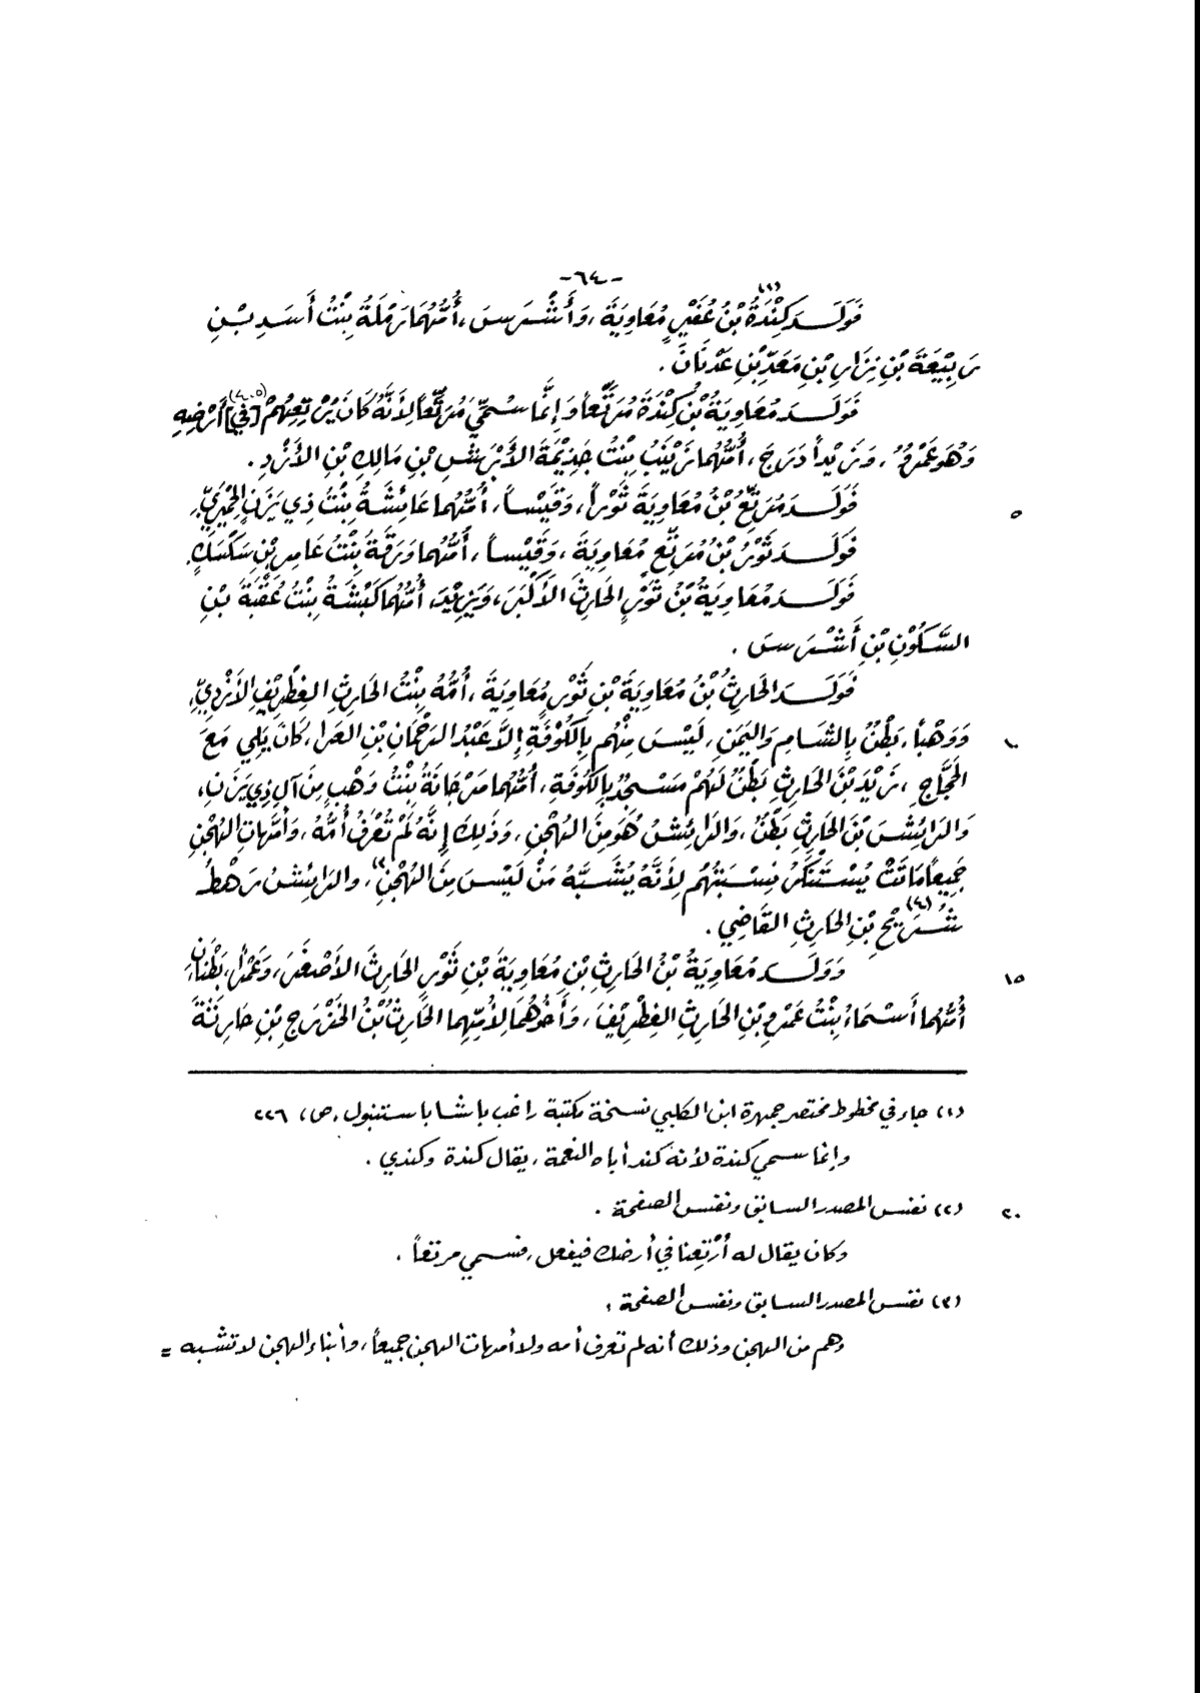 -٦٤-
فَوَلَــدَ كِنْدَةُ(١) بْنُ عُفَيْرٍ مُعَاوِيَةَ، وَأَشْــرَسَ، أُمُّهُمَا رَمْلَةُ بِنْتُ أَسَدِ بْــنِ
رَبِيْعَةَ بْنِ نِزَارِ بْنِ مَعَدِّ بْنِ عَدْنَانَ.
فَوَلَــدَ مُعَاوِيَةُ بْنُ كِنْدَةَ مُرَتِّعاً وَإِنَّمَا سُمِّيَ مُرَتِّعاً لِأَنَّهُ كَانَ يُرْتِعُهُمْ [في](٢) أَرْضِهِ
وَهُوَ عَمْرٌو، وَزَيْداً دَرَجَ، أُمُّهُمَا زَيْنَبُ بِنْتُ جَذِيْمَةَ الأَبْرَشِ بْنِ مَالِكِ بْنِ الأَزْدِ.
فَوَلَــدَ مُرَتِّعُ بْنُ مُعَاوِيَةَ ثَوْراً، وَقَيْساً، أُمُّهُمَا عَائِشَةُ بِنْتُ ذِي يَزَنٍ الحِمْيَرِيِّ. ٥
فَوَلَــدَ ثَوْرُ بْنُ مُرَتِّعٍ مُعَاوِيَةَ، وَقَيْساً، أُمُّهُمَا وَرَقَةُ بِنْتُ عَامِرِ بْنِ سَكْسَكٍ.
فَوَلَــدَ مُعَاوِيَةُ بْنُ ثَوْرٍ الحَارِثَ الأَكْبَرَ، وَيَزِيْدَ، أُمُّهُمَا كَبْشَةُ بِنْتُ عُقْبَةَ بْنِ
السَّكُوْنِ بْنِ أَشْــرَسَ.
فَوَلَــدَ الحَارِثُ بْنُ مُعَاوِيَةَ بْنِ ثَوْرٍ مُعَاوِيَةَ، أُمُّهُ بِنْتُ الحَارِثِ الغِطْرِيْفِ الأَزْدِيِّ،
وَوَهْباً، بَطْنٌ بِالشَّامِ وَاليَمَنِ، لَيْسَ مِنْهُم بِالكُوْفَةِ إِلاَّ عَبْدُ الرَّحْمَانِ بْنِ العَدا، كَانَ يَلِي مَعَ ١٠
الحَجَّاجِ، زَيْدَ بْنَ الحَارِثِ بَطْنٌ لَهُمْ مَسْجِدٌ بِالكُوْفَةِ، أُمُّهُمَا مَرْجَانَةُ بِنْتُ وَهْبٍ مِنَ آلِ ذِي يَزَنٍ،
وَالرَائِشَ بْنَ الحَارِثِ بَطْنٌ، وَالرَائِشُ هُوَ مِنَ الهُجْنِ، وَذَلِكَ إِنَّهُ لَمْ تُعْرَفْ أُمُّهُ، وَأُمَّهَاتِ الهُجْنِ
جَمِيْعاً مَاتَتْ يُسْتَنْكَرُ نِسْبَتُهُم لِأَنَّهُ يُشَبَّهُ مَنْ لَيْسَ مِنَ الهُجْنِ(٣)، والرَائِشُ رَهْطُ
شُــرَيْحِ(٤) بْنِ الحَارِثِ القَاضِي.
وَوَلَــدَ مُعَاوِيَةُ بْنُ الحَارِثِ بْنِ مُعَاوِيَةَ بْنِ ثَوْرٍ الحَارِثَ الأَصْغَرَ، وَعَمْراً، بَطْنَانِ، ١٥
أُمُّهُمَا أَسْمَاءُ بِنْتُ عَمْرِو بْنِ الحَارِثِ الغِطْرِيْفِ، وَأَخُوْهُمَا لِأُمِّهِمَا الحَارِثُ بْنُ الخَزْرَجِ بْنِ حَارِثَةَ
(١) جاء في مخطوط مختصر جمهرة ابن الكلبي نسخة مكتبة راغب باشا باستنبول، ص، ٢٢٦
وإنما سمي كندة لأنه كند أباه النعمة، يقال كندة وكندي.
(٢) نفس المصدر السابق ونفس الصفحة. ٢٠
وكان يقال له أَرْتِعنا في أرضك فيفعل، فسمي مرتعاً.
(٣) نفس المصدر السابق ونفس الصفحة:
وهم من الهجن وذلك أنه لم تعرف أمه ولا أمهات الهجن جميعاً، وأبناء الهجن لا تشبه =